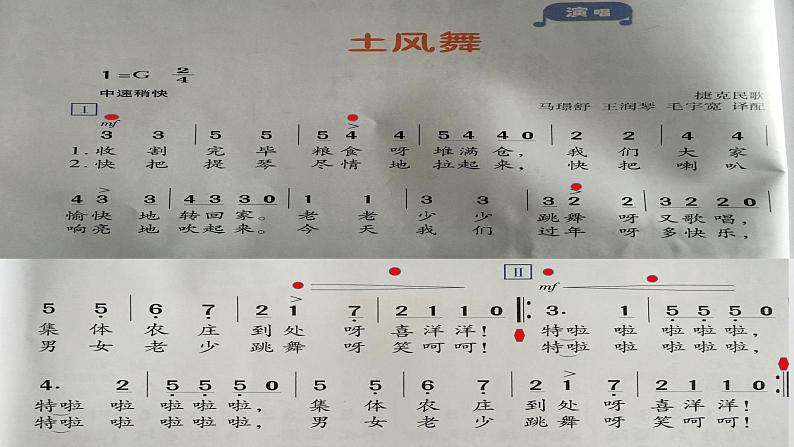 演唱
土风舞
1=G 2/4
中速稍快
捷克民歌
马璟舒 王润琴 毛宇宽 译配
I
mf
3 3 | 5 5 | 5 4 4 | 5 4 4 0 | 2 2 | 4 4 |
1.收 割 完 毕 粮 食 呀 堆 满 仓, 我 们 大 家
2.快 把 提 琴 尽 情 地 拉 起 来, 快 把 喇 叭
4 3 3 | 4 3 3 0 | 1 1 | 3 3 | 3 2 2 | 3 2 2 0 |
愉 快 地 转 回 家。 老 老 少 少 跳 舞 呀 又 歌 唱,
响 亮 地 吹 起 来。 今 天 我 们 过 年 呀 多 快 乐,
II
mf
5 5 | 6 7 | 2 1 7 | 2 1 1 0 ‖: 3· 1 | 5 5 5 0 |
集 体 农 庄 到 处 呀 喜 洋 洋! 特 啦 啦 啦 啦 啦,
男 女 老 少 跳 舞 呀 笑 呵 呵! 特 啦 啦 啦 啦 啦,
4· 2 | 5 5 5 0 | 5 5 | 6 7 | 2 1 7 | 2 1 1 0 :‖
特 啦 啦 啦 啦 啦, 集 体 农 庄 到 处 呀 喜 洋 洋!
特 啦 啦 啦 啦 啦, 男 女 老 少 跳 舞 呀 笑 呵 呵!